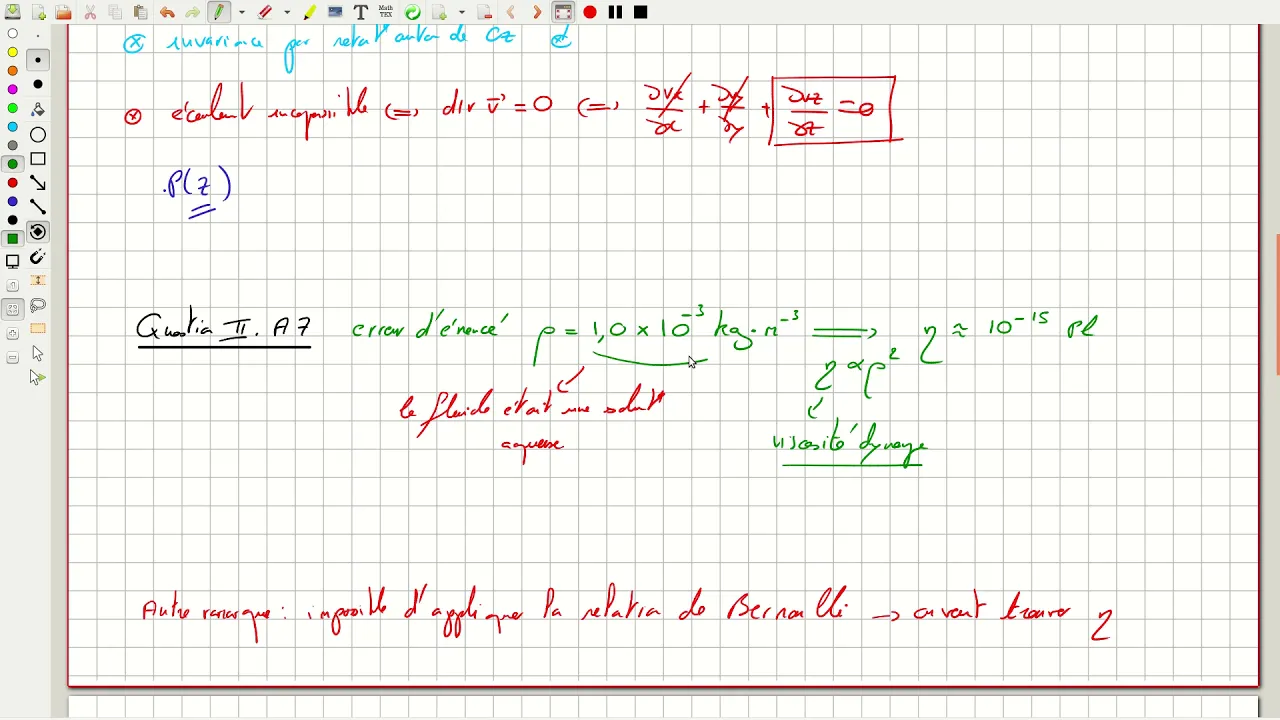 ⊗ invariance par rotat° autour de Oz et
⊗ écoulent incopssible (=) div v⃗ = 0 (=) ∂vx/∂x + ∂vy/∂y + ∂vz/∂z = 0
.P(z)
Question II. A 7 erreur d'énoncé ρ = 1,0 × 10⁻³ kg.m⁻³ ⟹ η ≈ 10⁻¹⁵ Pl
η ∝ ρ²
le fluide était une solut°
aqueuse
viscosité dynamqe
Autre remarque : impossible d'appliquer la relation de Bernoulli → on veut trouver η
T
Math
TEX